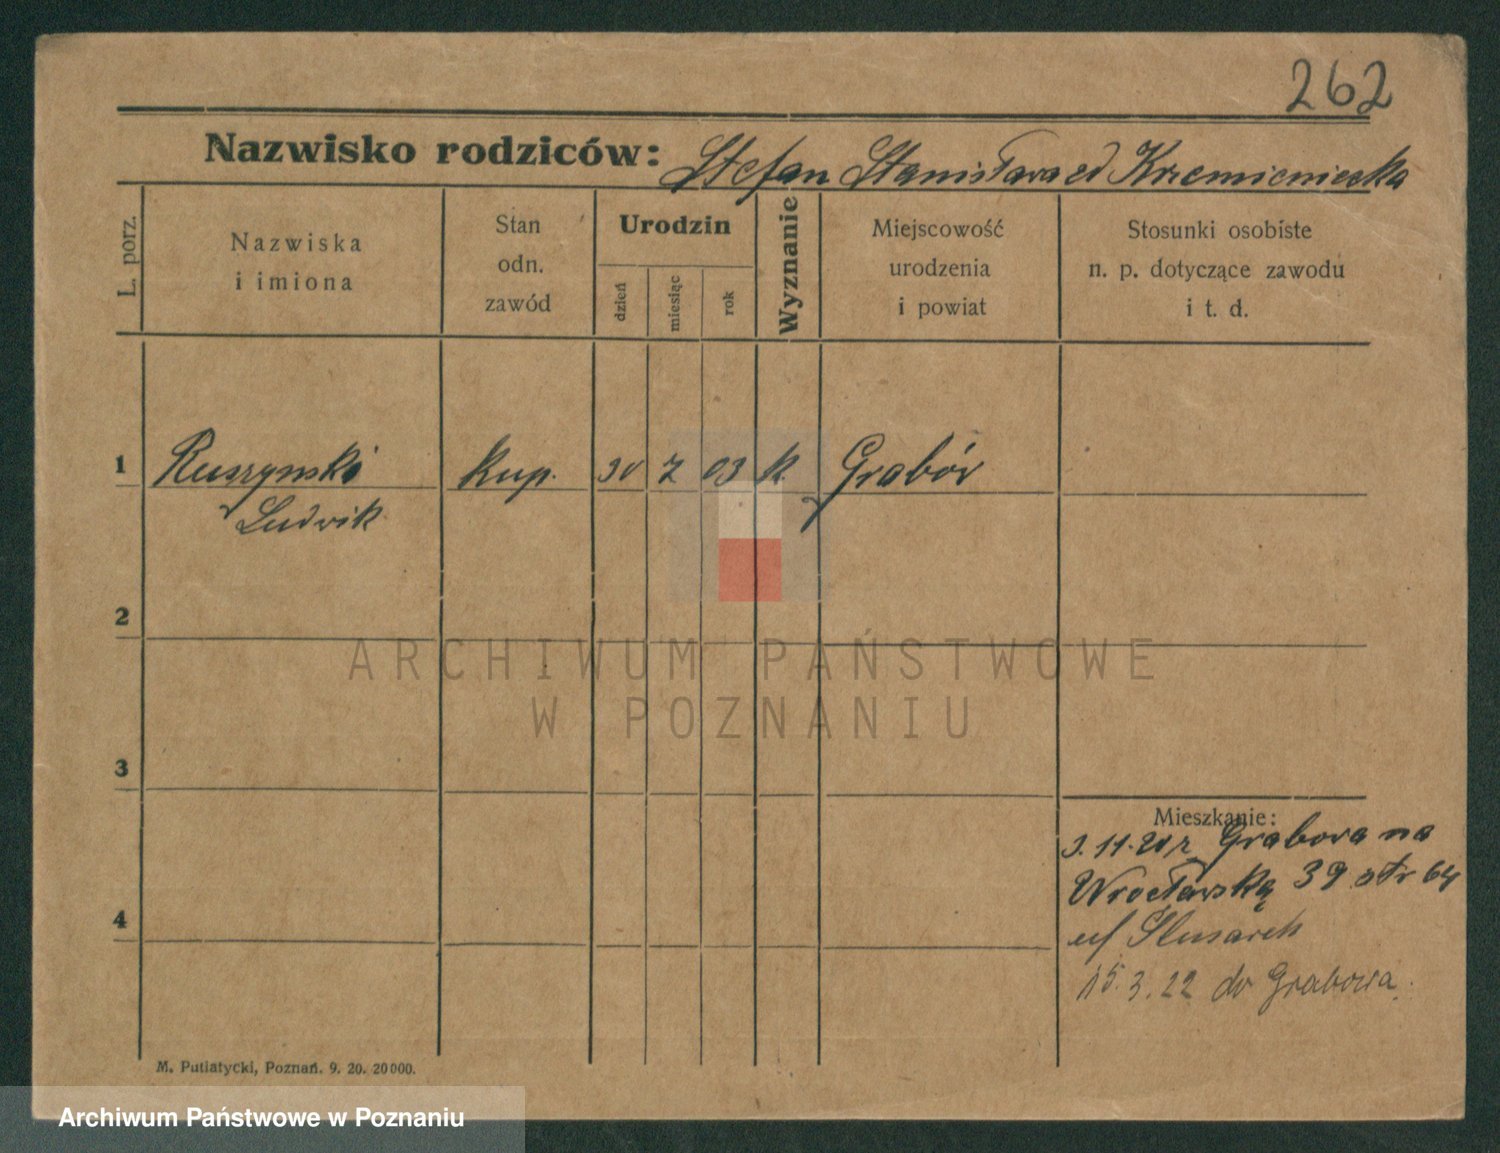 262
Nazwisko rodziców: Stefan Stanisława ed Krzemieniecka
L. porz.
Nazwiska
i imiona
Stan
odn.
zawód
Urodzin
dzień
miesiąc
rok
Wyznanie
Miejscowość
urodzenia
i powiat
Stosunki osobiste
n. p. dotyczące zawodu
i t. d.
1 Ruszynski kup. 30 7 03 k. Grabów
Ludwik
2
3
4
Mieszkanie:
3.11.21 z Grabowa na
Wrocławską 39 str 64
u/ Slusarek
15.3.22 do Grabowa.
M. Putiatycki, Poznań. 9. 20. 20000.
ARCHIWUM PAŃSTWOWE
W POZNANIU
Archiwum Państwowe w Poznaniu